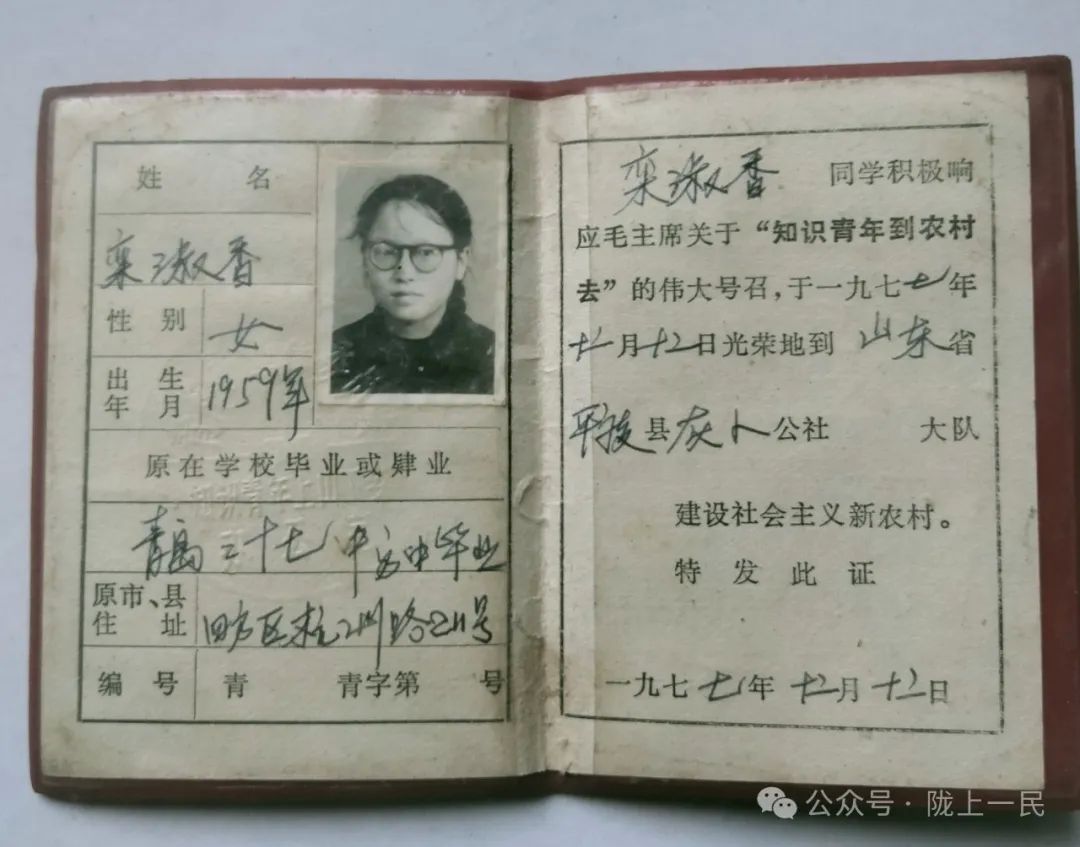 姓 名
栾淑香
性 别 女
出 生
年 月 1959年
原在学校毕业或肄业
青岛二十七中高中毕业
原市、县
住 址 四方区杭州路211号
编 号 青 青字第 号
栾淑香 同学积极响
应毛主席关于“知识青年到农村
去”的伟大号召，于一九七七年
十二月十二日光荣地到 山东省
县 公社 大队
建设社会主义新农村。
特 发 此 证
一九七七年十二月十二日
公众号·陇上一民